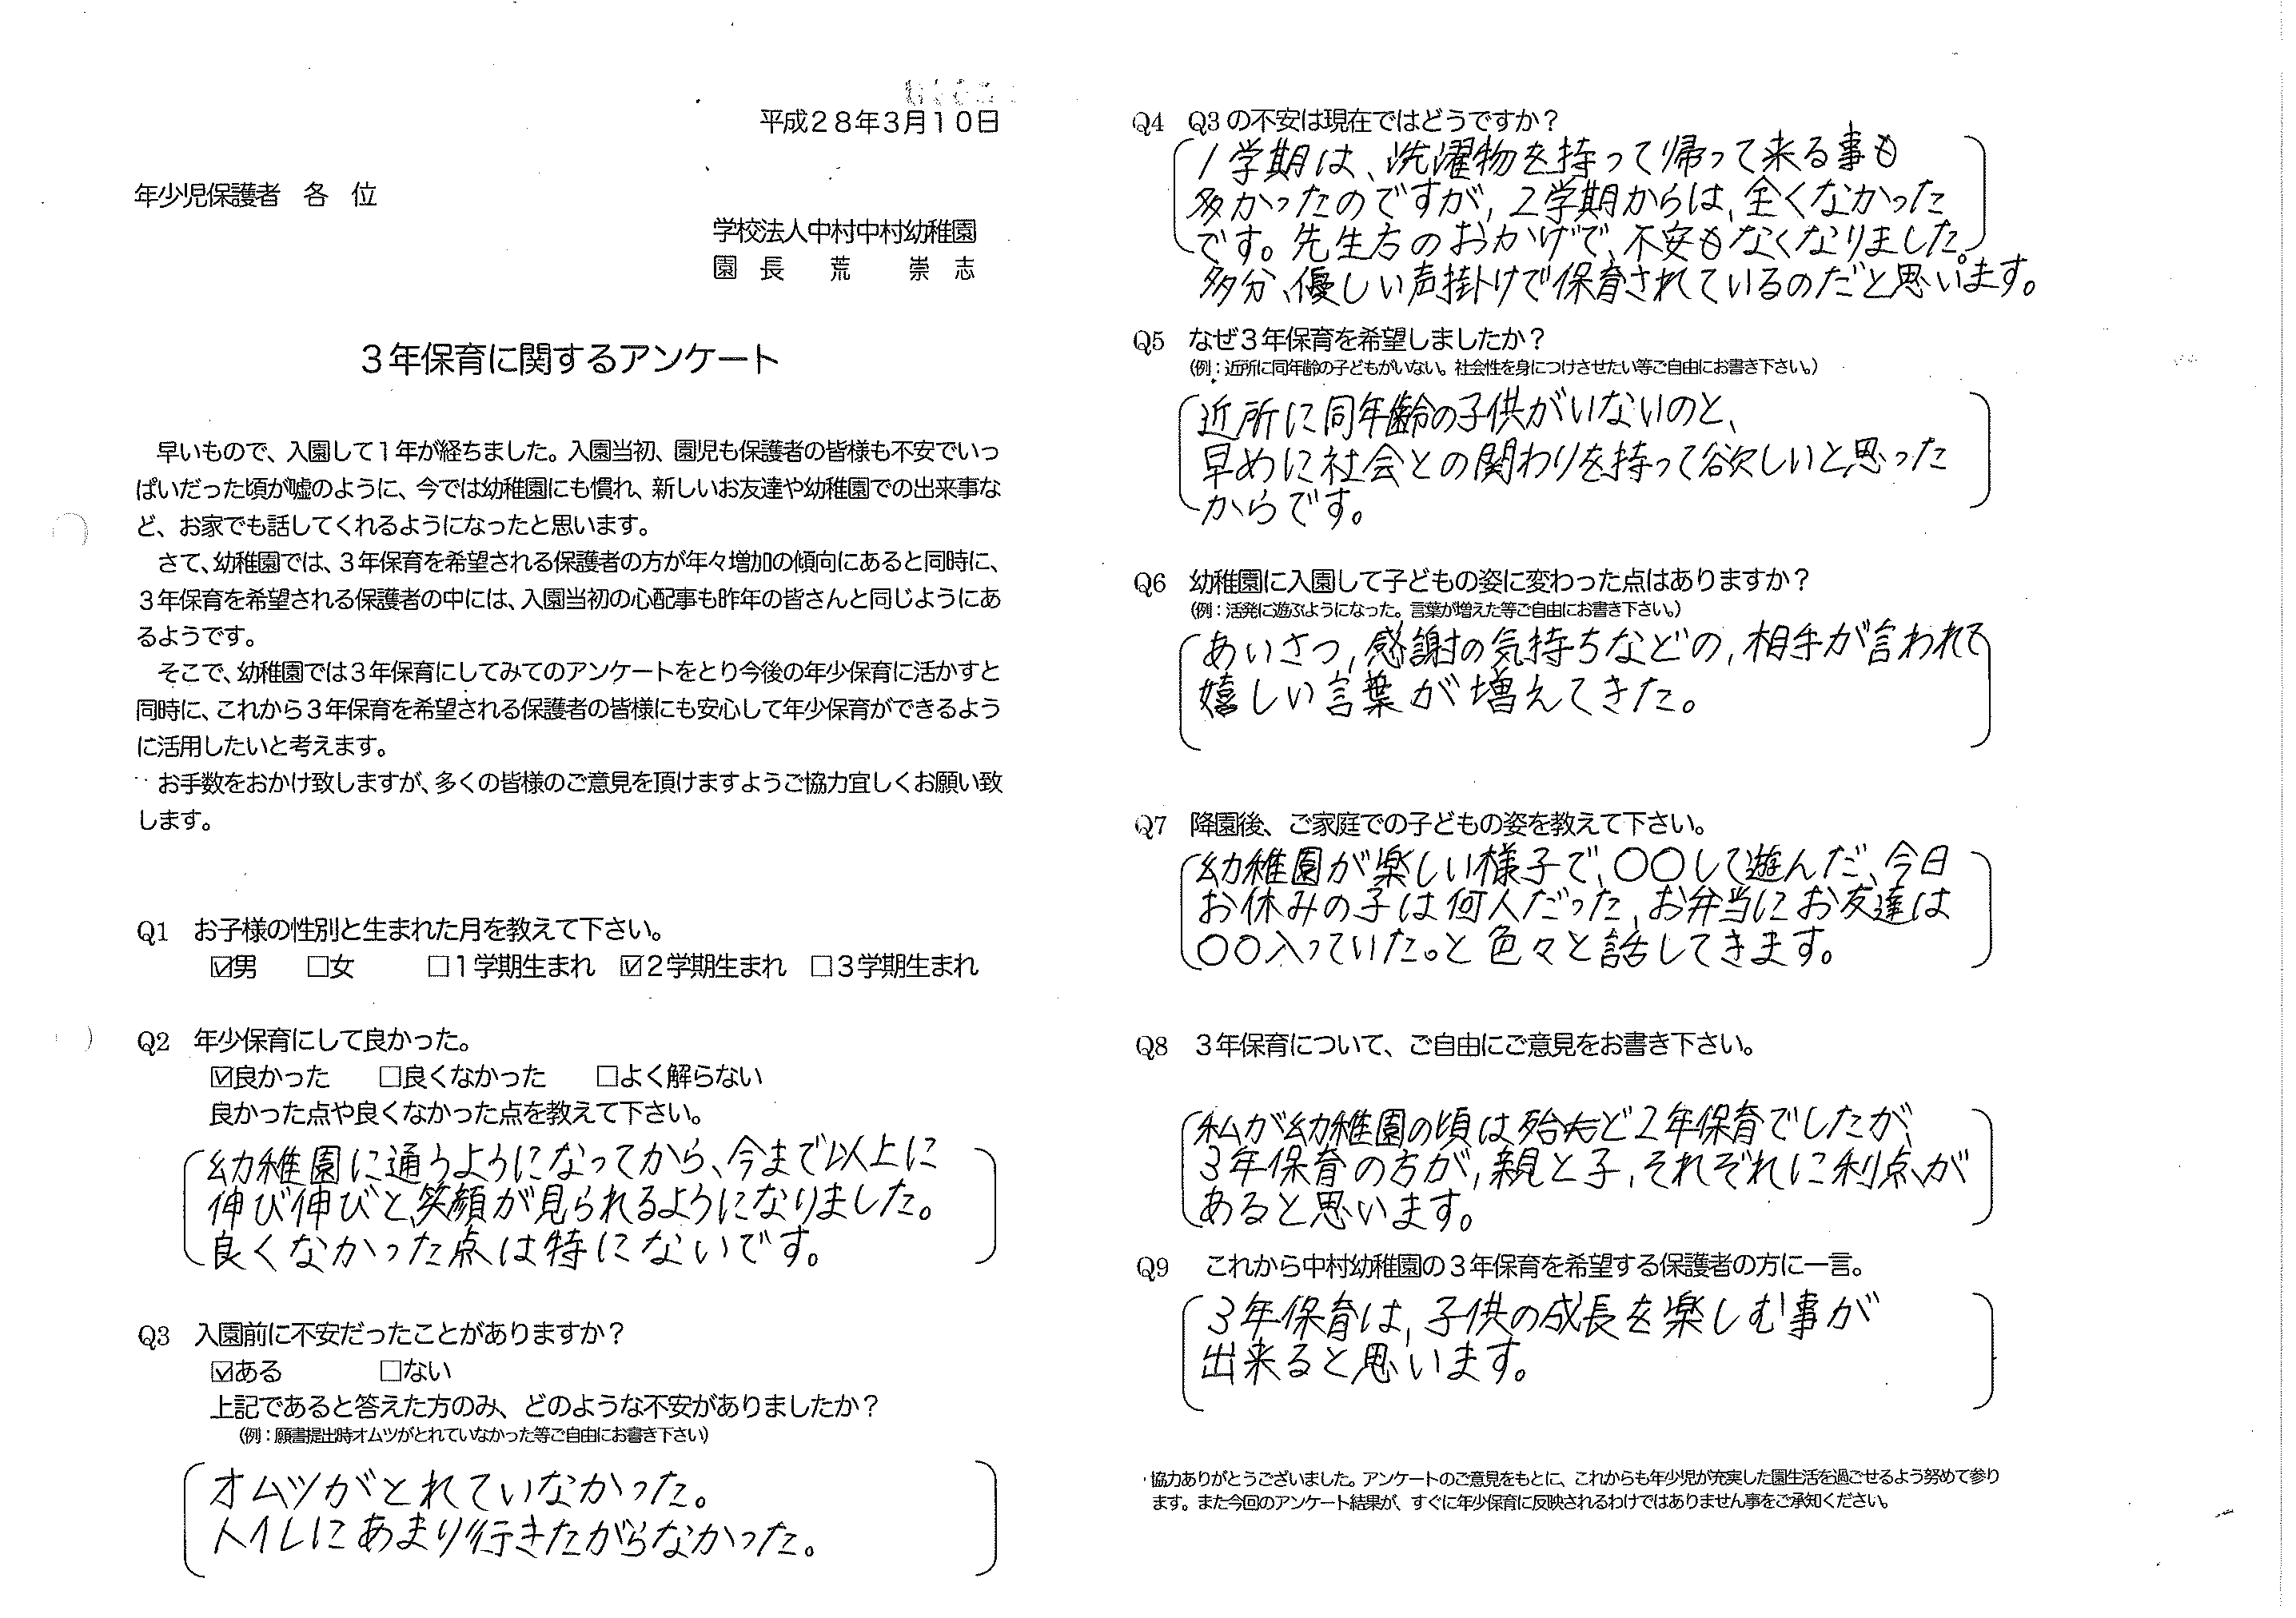 平成28年3月10日
年少児保護者　各　位
学校法人中村中村幼稚園
園　長　　荒　　崇　志
3年保育に関するアンケート
早いもので、入園して1年が経ちました。入園当初、園児も保護者の皆様も不安でいっ
ぱいだった頃が嘘のように、今では幼稚園にも慣れ、新しいお友達や幼稚園での出来事な
ど、お家でも話してくれるようになったと思います。
さて、幼稚園では、3年保育を希望される保護者の方が年々増加の傾向にあると同時に、
3年保育を希望される保護者の中には、入園当初の心配事も昨年の皆さんと同じようにあ
るようです。
そこで、幼稚園では3年保育にしてみてのアンケートをとり今後の年少保育に活かすと
同時に、これから3年保育を希望される保護者の皆様にも安心して年少保育ができるよう
に活用したいと考えます。
お手数をおかけ致しますが、多くの皆様のご意見を頂けますようご協力宜しくお願い致
します。
Q1　お子様の性別と生まれた月を教えて下さい。
☑男　□女　□1学期生まれ　☑2学期生まれ　□3学期生まれ
Q2　年少保育にして良かった。
☑良かった　□良くなかった　□よく解らない
良かった点や良くなかった点を教えて下さい。
幼稚園に通うようになってから、今まで以上に
伸び伸びと、笑顔が見られるようになりました。
良くなかった点は特にないです。
Q3　入園前に不安だったことがありますか？
☑ある　□ない
上記であると答えた方のみ、どのような不安がありましたか？
（例：願書提出時オムツがとれていなかった等ご自由にお書き下さい）
オムツがとれていなかった。
トイレにあまり行きたがらなかった。
Q4　Q3の不安は現在ではどうですか？
1学期は、洗濯物を持って帰って来る事も
多かったのですが、2学期からは、全くなかった
です。先生方のおかげで、不安もなくなりました。
多分、優しい声掛けで保育されているのだと思います。
Q5　なぜ3年保育を希望しましたか？
（例：近所に同年齢の子どもがいない。社会性を身につけさせたい等ご自由にお書き下さい。）
近所に同年齢の子供がいないのと、
早めに社会との関わりを持って欲しいと思った
からです。
Q6　幼稚園に入園して子どもの姿に変わった点はありますか？
（例：活発に遊ぶようになった。言葉が増えた等ご自由にお書き下さい。）
あいさつ、感謝の気持ちなどの、相手が言われて
嬉しい言葉が増えてきた。
Q7　降園後、ご家庭での子どもの姿を教えて下さい。
幼稚園が楽しい様子で、〇〇して遊んだ、今日
お休みの子は何人だった、お弁当にお友達は
〇〇入っていた。と色々と話してきます。
Q8　3年保育について、ご自由にご意見をお書き下さい。
私が幼稚園の頃は殆ど2年保育でしたが、
3年保育の方が、親と子、それぞれに利点が
あると思います。
Q9　これから中村幼稚園の3年保育を希望する保護者の方に一言。
3年保育は、子供の成長を楽しむ事が
出来ると思います。
協力ありがとうございました。アンケートのご意見をもとに、これからも年少児が充実した園生活を過ごせるよう努めて参り
ます。また今回のアンケート結果が、すぐに年少保育に反映されるわけではありません事をご承知ください。